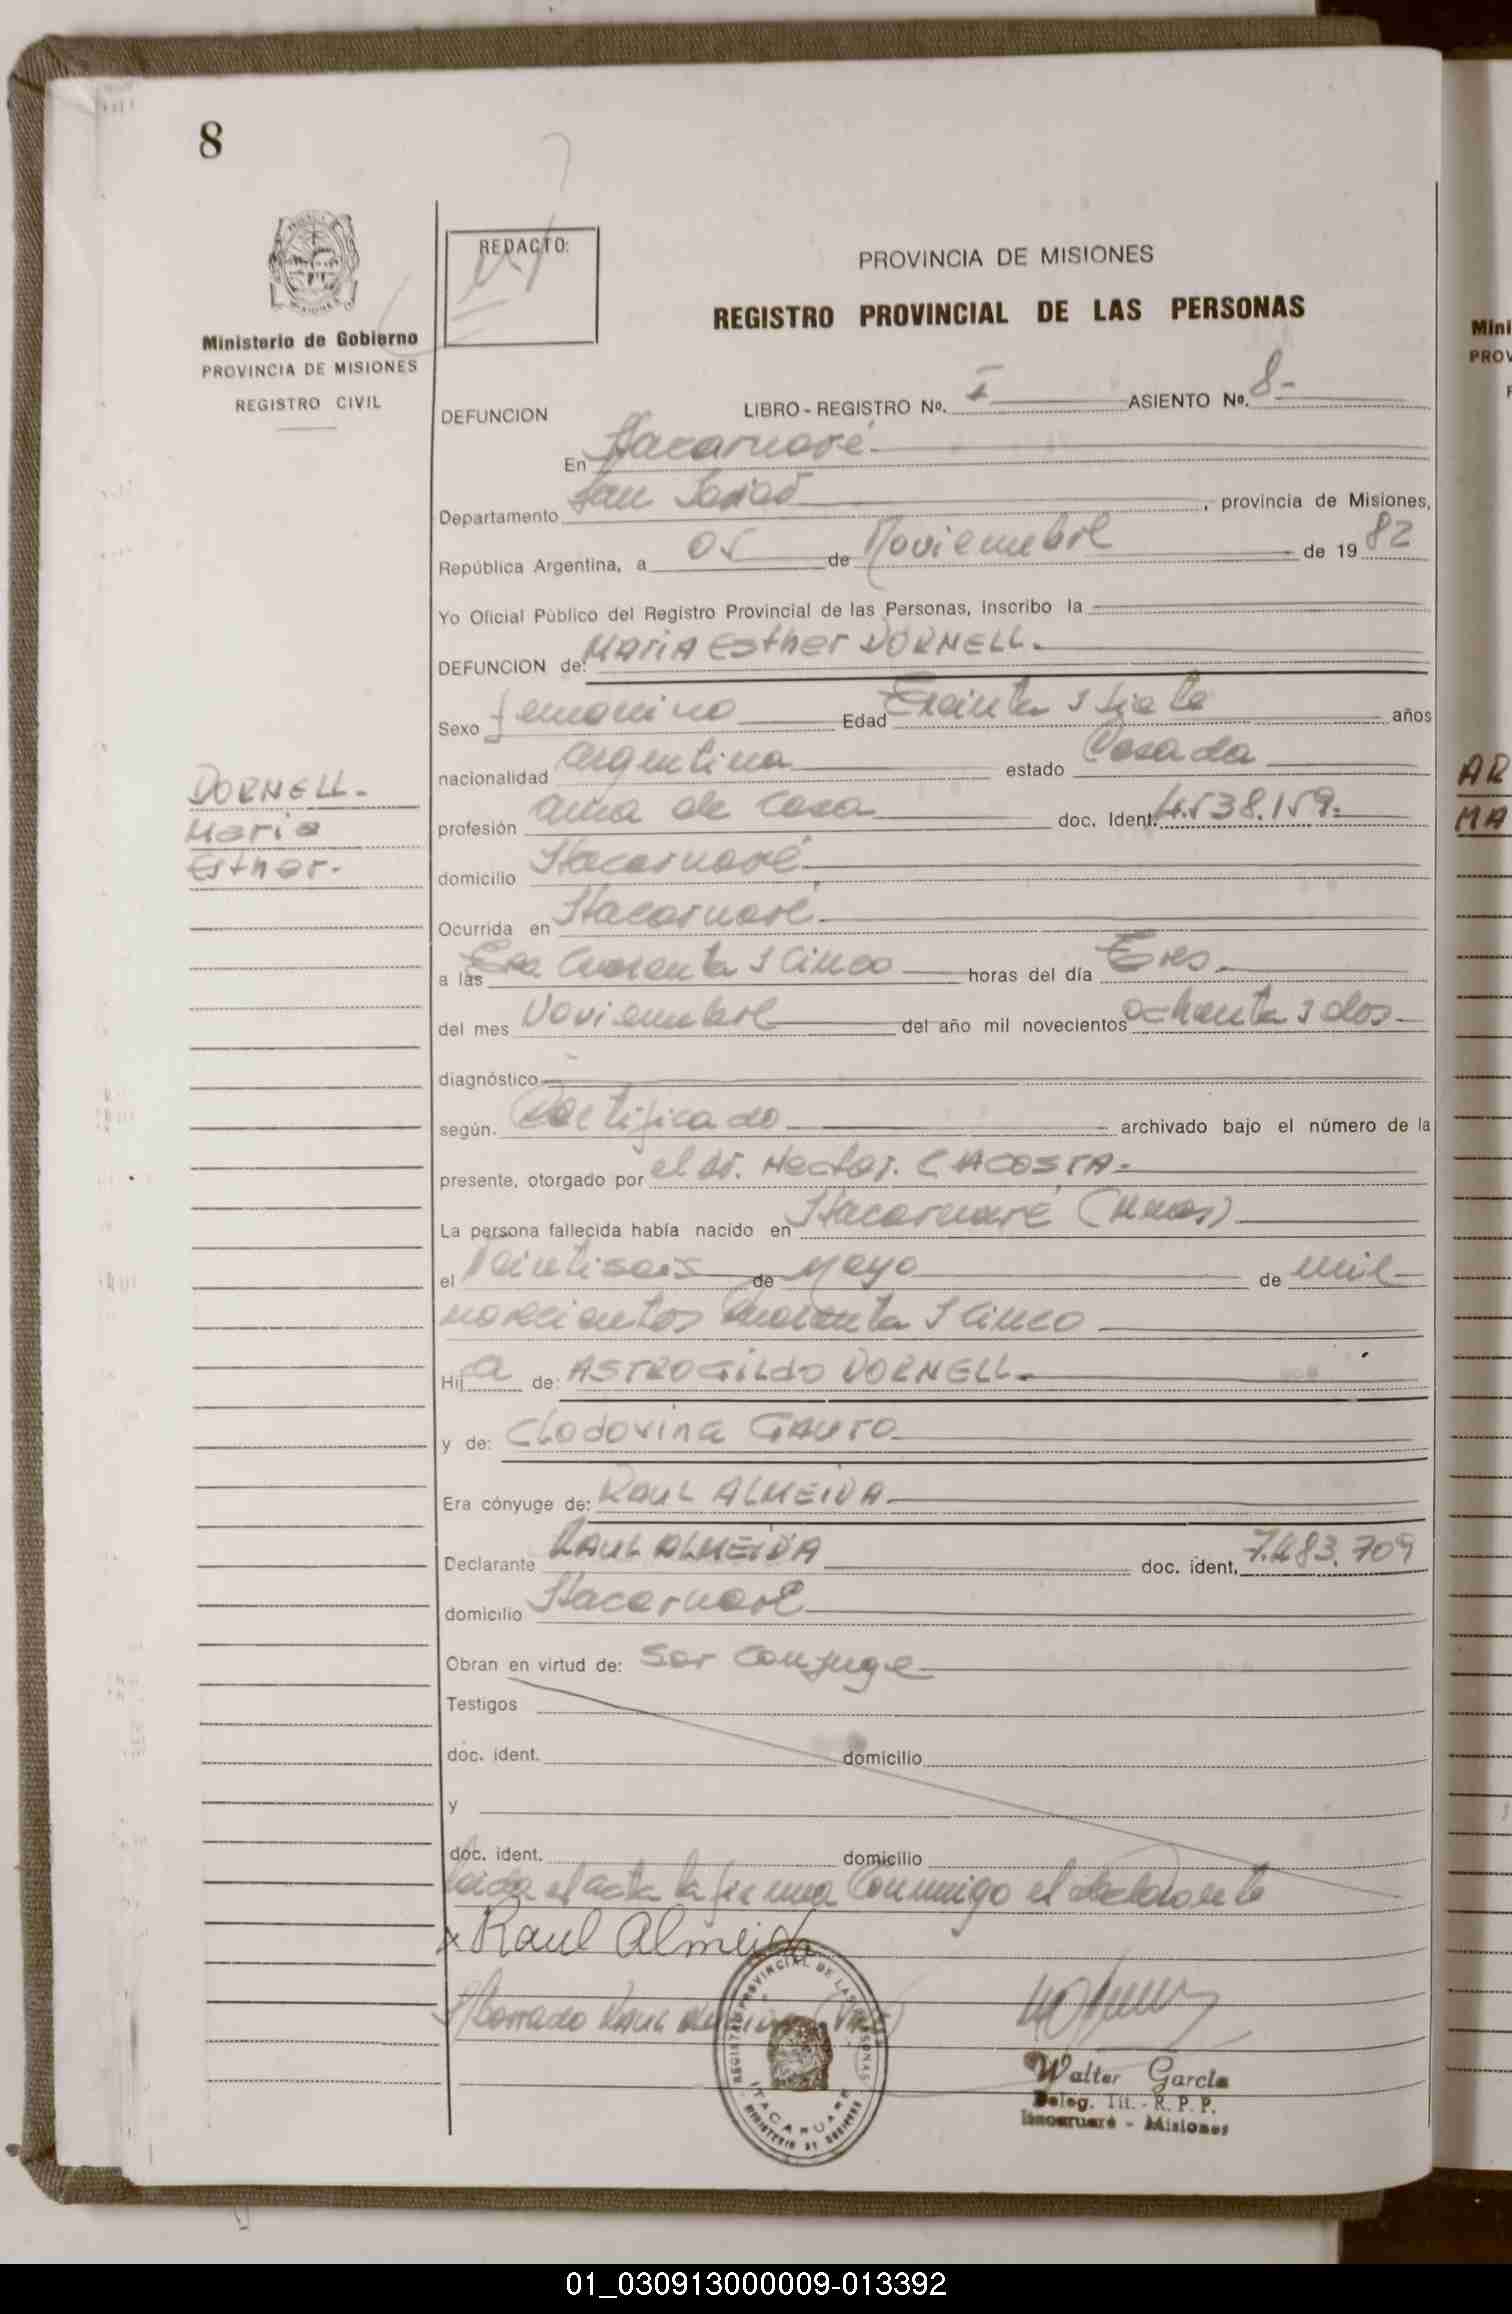 8
REDACTO:
PROVINCIA DE MISIONES
REGISTRO PROVINCIAL DE LAS PERSONAS
Ministerio de Gobierno
PROVINCIA DE MISIONES
REGISTRO CIVIL
DEFUNCION LIBRO - REGISTRO Nº. I ASIENTO Nº. 8-
En Itacaruaré
Departamento San Javier, provincia de Misiones,
República Argentina, a 05 de Noviembre de 19 82
Yo Oficial Público del Registro Provincial de las Personas, inscribo la
DEFUNCION de: MARIA Esther DORNELL.
Sexo femenino Edad Treinta y siete años
nacionalidad argentina estado Casada
DORNELL.
Maria
Esther.
profesión ama de casa doc. Ident. 4.538.159.
domicilio Itacaruaré
Ocurrida en Itacaruaré
a las Tres Cuarenta y Cinco horas del día Tres
del mes Noviembre del año mil novecientos ochenta y dos
diagnóstico
según. Certificado archivado bajo el número de la
presente, otorgado por el dr. Hector.
La persona fallecida había nacido en Itacaruaré (Mnes)
el Veintiseis de Mayo de mil
novecientos Cuarenta y Cinco
Hija de: ASTROGILDO DORNELL
y de: CLodovina
Era cónyuge de: RAUL ALMEIDA
Declarante RAUL ALMEIDA doc. ident. 7.483.709
domicilio Itacaruaré
Obran en virtud de: Ser Conjuge
Testigos
doc. ident. domicilio
y
doc. ident. domicilio
leida el acta la firma Conmigo el declarante
x Raul Almeida
Borrado RAUL
REGISTRO PROVINCIAL DE LAS PERSONAS
ITACARUARE
MINISTERIO DE GOBIERNO
Walter García
Deleg. Tit. - R. P. P.
Itacaruaré - Misiones
Mini
PROV
AR
MA
01_030913000009-013392